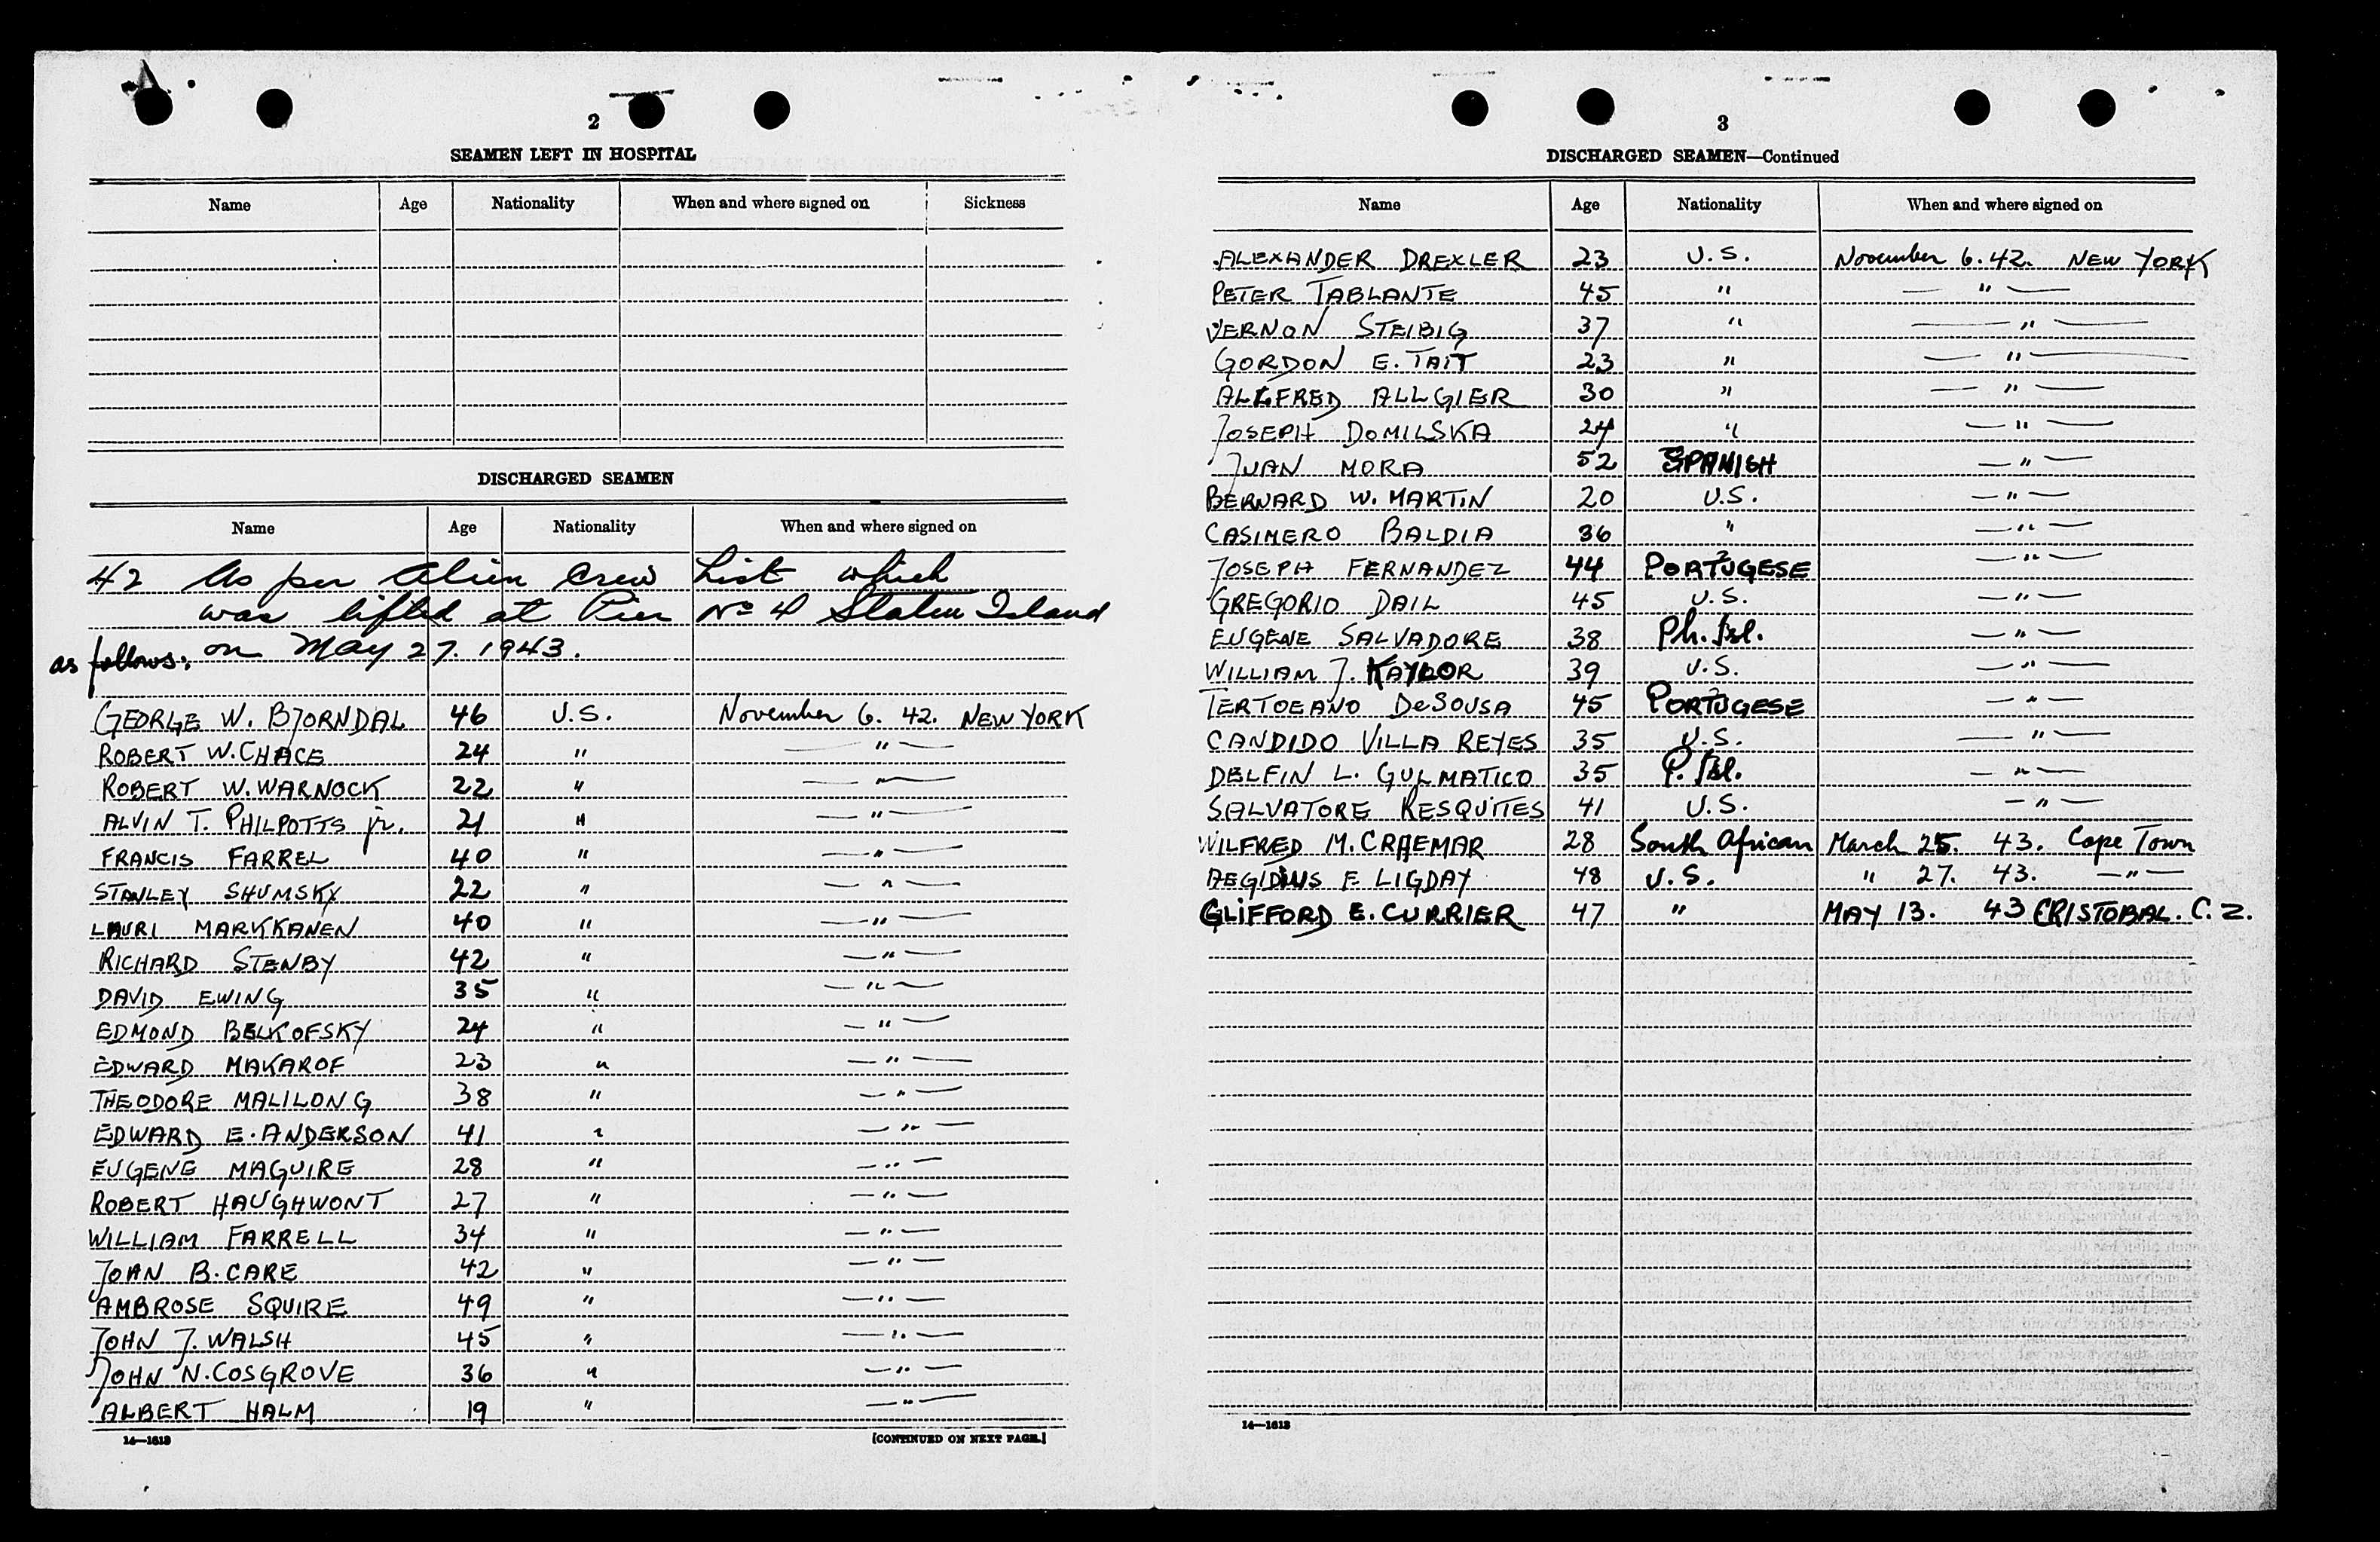 2
SEAMEN LEFT IN HOSPITAL
Name Age Nationality When and where signed on Sickness
DISCHARGED SEAMEN
Name Age Nationality When and where signed on
42 As per Alien Crew List which
was lifted at Pier No 4 Staten Island
as follows: on May 27. 1943.
GEORGE W. BJORNDAL 46 U.S. November 6. 42. NEW YORK
ROBERT W. CHACE 24 " — " —
ROBERT W. WARNOCK 22 " — " —
ALVIN T. PHILPOTTS jr. 21 " — " —
FRANCIS FARREL 40 " — " —
STANLEY SHUMSKY 22 " — " —
LAURI MARKKANEN 40 " — " —
RICHARD STENBY 42 " — " —
DAVID EWING 35 " — " —
EDMOND BELKOFSKY 24 " — " —
EDWARD MAKAROF 23 " — " —
THEODORE MALILONG 38 " — " —
EDWARD E. ANDERSON 41 " — " —
EUGENE MAGUIRE 28 " — " —
ROBERT HAUGHWONT 27 " — " —
WILLIAM FARRELL 34 " — " —
JOHN B. CARE 42 " — " —
AMBROSE SQUIRE 49 " — " —
JOHN J. WALSH 45 " — " —
JOHN N. COSGROVE 36 " — " —
ALBERT HALM 19 " — " —
14—1613 [CONTINUED ON NEXT PAGE.]
3
DISCHARGED SEAMEN—Continued
Name Age Nationality When and where signed on
ALEXANDER DREXLER 23 U.S. November 6. 42. NEW YORK
PETER TABLANTE 45 " — " —
VERNON STEIBIG 37 " — " —
GORDON E. TAIT 23 " — " —
ALLFRED ALLGIER 30 " — " —
JOSEPH DOMILSKA 24 " — " —
JUAN MORA 52 SPANISH — " —
BERNARD W. MARTIN 20 U.S. — " —
CASIMERO BALDIA 36 " — " —
JOSEPH FERNANDEZ 44 PORTUGESE — " —
GREGORIO DAIL 45 U.S. — " —
EUGENE SALVADORE 38 Ph. Isl. — " —
WILLIAM J. KAYLOR 39 U.S. — " —
TERTOEANO DeSOUSA 45 PORTUGESE — " —
CANDIDO VILLA REYES 35 U.S. — " —
DELFIN L. GULMATICO 35 P. Isl. — " —
SALVATORE RESQUITES 41 U.S. — " —
WILFRED M. CRAEMAR 28 South African March 25. 43. Cape Town
AEGIDIUS F. LIGDAY 48 U.S. " 27. 43. — " —
GLIFFORD E. CURRIER 47 " MAY 13. 43 CRISTOBAL. C. Z.
14—1613